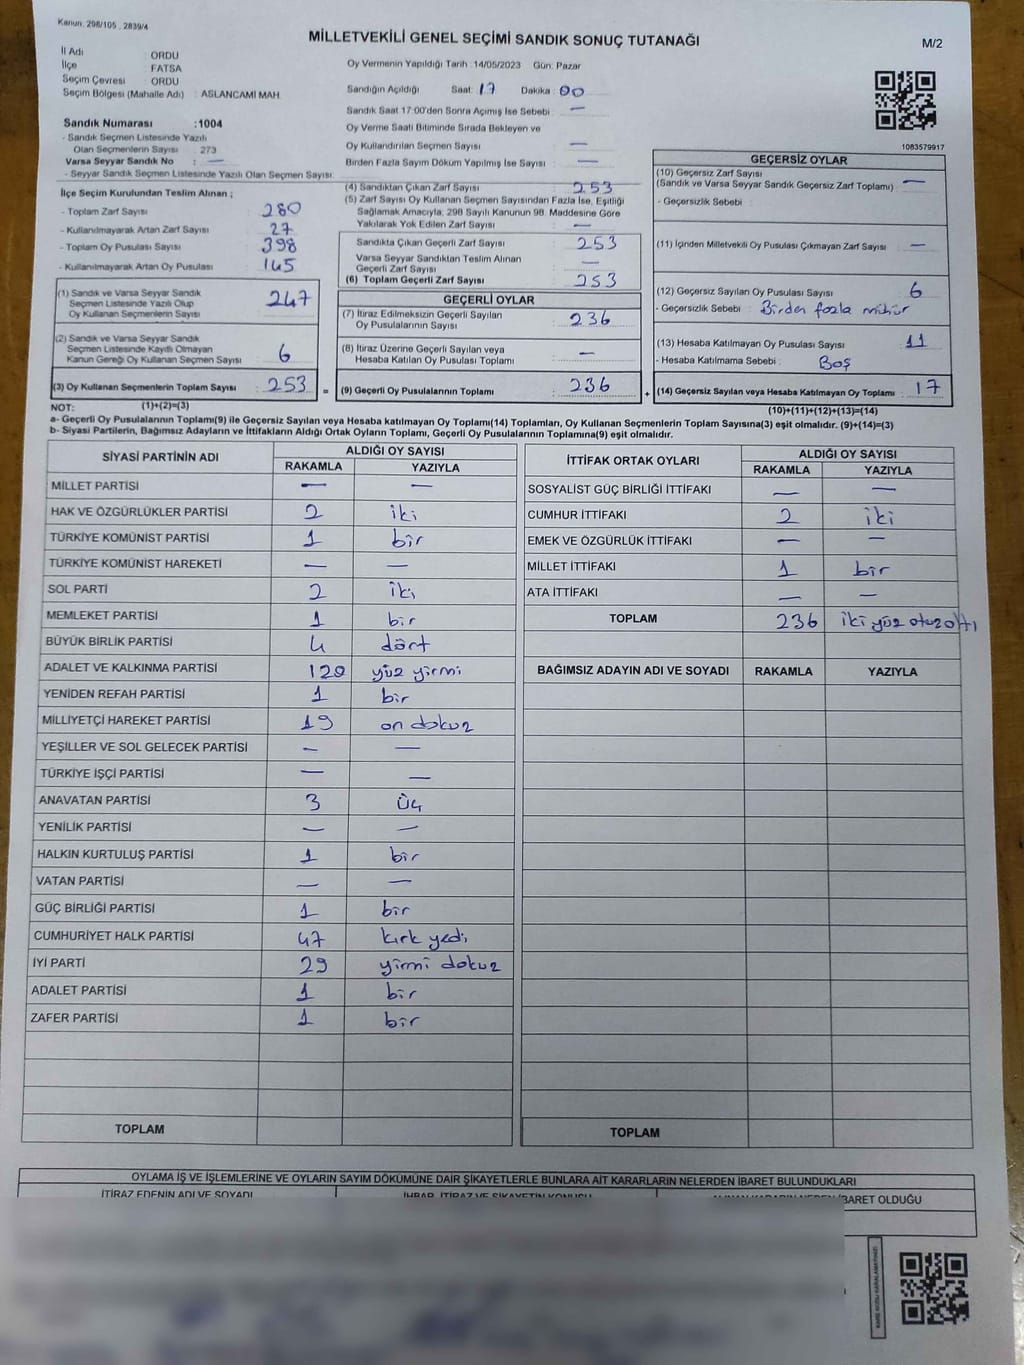 Kanun. 298/105 . 2839/4
MİLLETVEKİLİ GENEL SEÇİMİ SANDIK SONUÇ TUTANAĞI
M/2
İl Adı ORDU
İlçe FATSA
Seçim Çevresi : ORDU
Seçim Bölgesi (Mahalle Adı) : ASLANCAMİ MAH.
Oy Vermenin Yapıldığı Tarih :14/05/2023 Gün: Pazar
Sandığın Açıldığı Saat: 17 Dakika : 00
Sandık Saat 17:00'den Sonra Açımış İse Sebebi : —
Oy Verme Saati Bitiminde Sırada Bekleyen ve
Oy Kullandırılan Seçmen Sayısı : —
Birden Fazla Sayım Döküm Yapılmış İse Sayısı : —
Sandık Numarası :1004
- Sandık Seçmen Listesinde Yazılı
Olan Seçmenlerin Sayısı : 273
Varsa Seyyar Sandık No : —
- Seyyar Sandık Seçmen Listesinde Yazılı Olan Seçmen Sayısı:
İlçe Seçim Kurulundan Teslim Alınan ;
- Toplam Zarf Sayısı : 280
- Kullanılmayarak Artan Zarf Sayısı : 27
- Toplam Oy Pusulası Sayısı : 398
- Kullanılmayarak Artan Oy Pusulası : 145
(1) Sandık ve Varsa Seyyar Sandık
Seçmen Listesinde Yazılı Olup
Oy Kullanan Seçmenlerin Sayısı : 247
(2) Sandık ve Varsa Seyyar Sandık
Seçmen Listesinde Kayıtlı Olmayan
Kanun Gereği Oy Kullanan Seçmen Sayısı : 6
(3) Oy Kullanan Seçmenlerin Toplam Sayısı : 253 =
(1)+(2)=(3)
(4) Sandıktan Çıkan Zarf Sayısı : 253
(5) Zarf Sayısı Oy Kullanan Seçmen Sayısından Fazla İse, Eşitliği
Sağlamak Amacıyla, 298 Sayılı Kanunun 98. Maddesine Göre
Yakılarak Yok Edilen Zarf Sayısı : —
Sandıkta Çıkan Geçerli Zarf Sayısı : 253
Varsa Seyyar Sandıktan Teslim Alınan
Geçerli Zarf Sayısı : —
(6) Toplam Geçerli Zarf Sayısı : 253
GEÇERLİ OYLAR
(7) İtiraz Edilmeksizin Geçerli Sayılan
Oy Pusulalarının Sayısı : 236
(8) İtiraz Üzerine Geçerli Sayılan veya
Hesaba Katılan Oy Pusulası Toplamı : —
(9) Geçerli Oy Pusulalarının Toplamı : 236 +
1083579917
GEÇERSİZ OYLAR
(10) Geçersiz Zarf Sayısı
(Sandık ve Varsa Seyyar Sandık Geçersiz Zarf Toplamı) : —
- Geçersizlik Sebebi :
(11) İçinden Milletvekili Oy Pusulası Çıkmayan Zarf Sayısı : —
(12) Geçersiz Sayılan Oy Pusulası Sayısı : 6
- Geçersizlik Sebebi : Birden fazla mühür
(13) Hesaba Katılmayan Oy Pusulası Sayısı : 11
- Hesaba Katılmama Sebebi : Boş
(14) Geçersiz Sayılan veya Hesaba Katılmayan Oy Toplamı : 17
(10)+(11)+(12)+(13)=(14)
NOT:
a- Geçerli Oy Pusulalarının Toplamı(9) ile Geçersiz Sayılan veya Hesaba katılmayan Oy Toplamı(14) Toplamları, Oy Kullanan Seçmenlerin Toplam Sayısına(3) eşit olmalıdır. (9)+(14)=(3)
b- Siyasi Partilerin, Bağımsız Adayların ve İttifakların Aldığı Ortak Oyların Toplamı, Geçerli Oy Pusulalarının Toplamına(9) eşit olmalıdır.
SİYASİ PARTİNİN ADI ALDIĞI OY SAYISI
RAKAMLA YAZIYLA
MİLLET PARTİSİ — —
HAK VE ÖZGÜRLÜKLER PARTİSİ 2 iki
TÜRKİYE KOMÜNİST PARTİSİ 1 bir
TÜRKİYE KOMÜNİST HAREKETİ — —
SOL PARTİ 2 iki
MEMLEKET PARTİSİ 1 bir
BÜYÜK BİRLİK PARTİSİ 4 dört
ADALET VE KALKINMA PARTİSİ 120 yüz yirmi
YENİDEN REFAH PARTİSİ 1 bir
MİLLİYETÇİ HAREKET PARTİSİ 19 on dokuz
YEŞİLLER VE SOL GELECEK PARTİSİ — —
TÜRKİYE İŞÇİ PARTİSİ — —
ANAVATAN PARTİSİ 3 üç
YENİLİK PARTİSİ — —
HALKIN KURTULUŞ PARTİSİ 1 bir
VATAN PARTİSİ — —
GÜÇ BİRLİĞİ PARTİSİ 1 bir
CUMHURİYET HALK PARTİSİ 47 kırk yedi
İYİ PARTİ 29 yirmi dokuz
ADALET PARTİSİ 1 bir
ZAFER PARTİSİ 1 bir
TOPLAM
İTTİFAK ORTAK OYLARI ALDIĞI OY SAYISI
RAKAMLA YAZIYLA
SOSYALİST GÜÇ BİRLİĞİ İTTİFAKI — —
CUMHUR İTTİFAKI 2 iki
EMEK VE ÖZGÜRLÜK İTTİFAKI — —
MİLLET İTTİFAKI 1 bir
ATA İTTİFAKI — —
TOPLAM 236 iki yüz otuz altı
BAĞIMSIZ ADAYIN ADI VE SOYADI RAKAMLA YAZIYLA
TOPLAM
OYLAMA İŞ VE İŞLEMLERİNE VE OYLARIN SAYIM DÖKÜMÜNE DAİR ŞİKAYETLERLE BUNLARA AİT KARARLARIN NELERDEN İBARET BULUNDUKLARI
İTİRAZ EDENİN ADI VE SOYADI İHBAR, İTİRAZ VE ŞİKAYETİN KONUSU ALINAN KARARIN NEDEN İBARET OLDUĞU